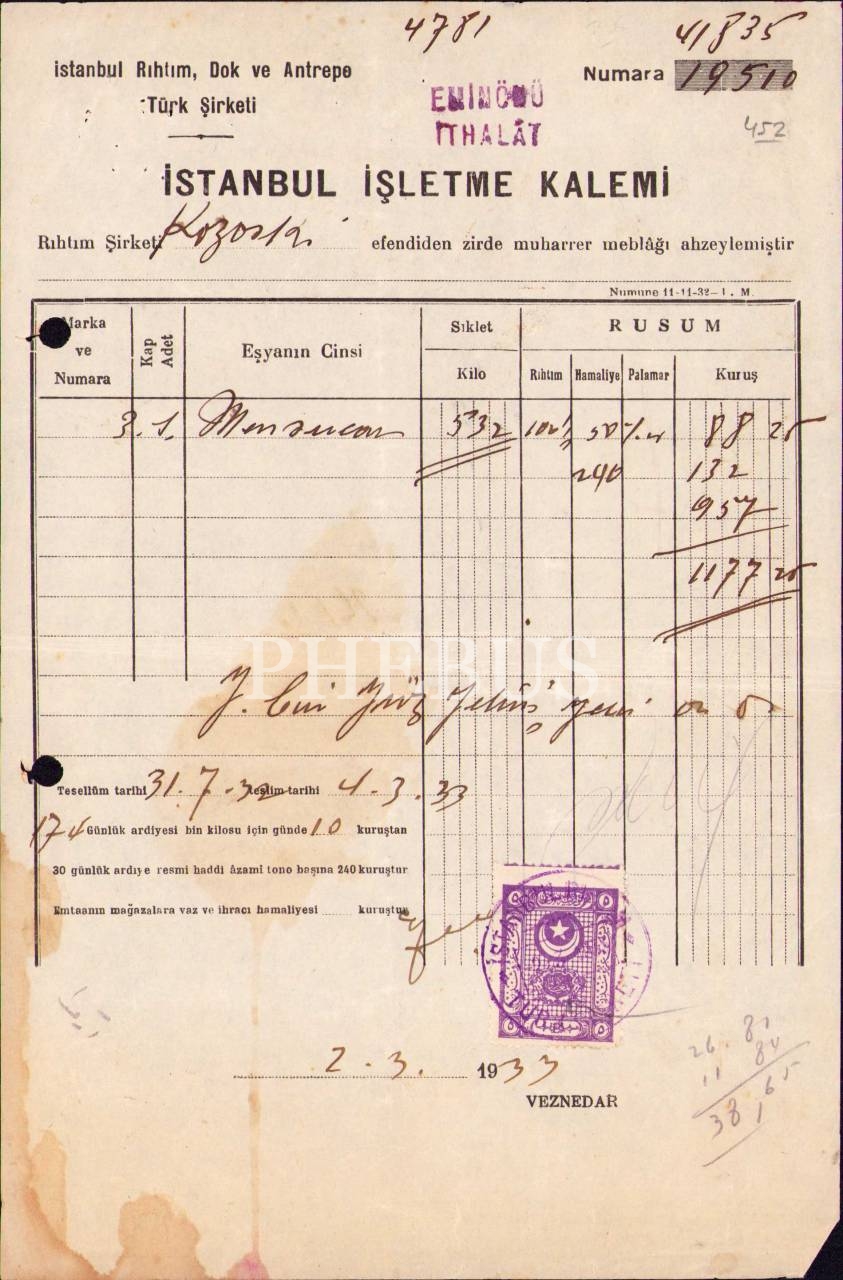 4781
41835
istanbul Rıhtım, Dok ve Antrepo
Türk Şirketi
EMİNÖNÜ
İTHALÂT
Numara 19510
452
İSTANBUL İŞLETME KALEMİ
Rıhtım Şirketi efendiden zirde muharrer meblâğı ahzeylemiştir
Numune 11-11-32-1. M.
Marka ve Numara
Kap Adet
Eşyanın Cinsi
Sıklet
Kilo
RUSUM
Rıhtım Hamaliye Palamar Kuruş
3. 1. 532 50 88 25
240 132
957
1177 25
PHEBUS
Y. bin yüz yetmiş yedi
Tesellüm tarihi 31.7.32 Teslim tarihi 4.3.33
174 Günlük ardiyesi bin kilosu için günde 10 kuruştan
30 günlük ardiye resmi haddi âzami tono başına 240 kuruştur
Emtaanın mağazalara vaz ve ihracı hamaliyesi kuruştur
2.3. 1933
VEZNEDAR
26.81
11 84
38 65